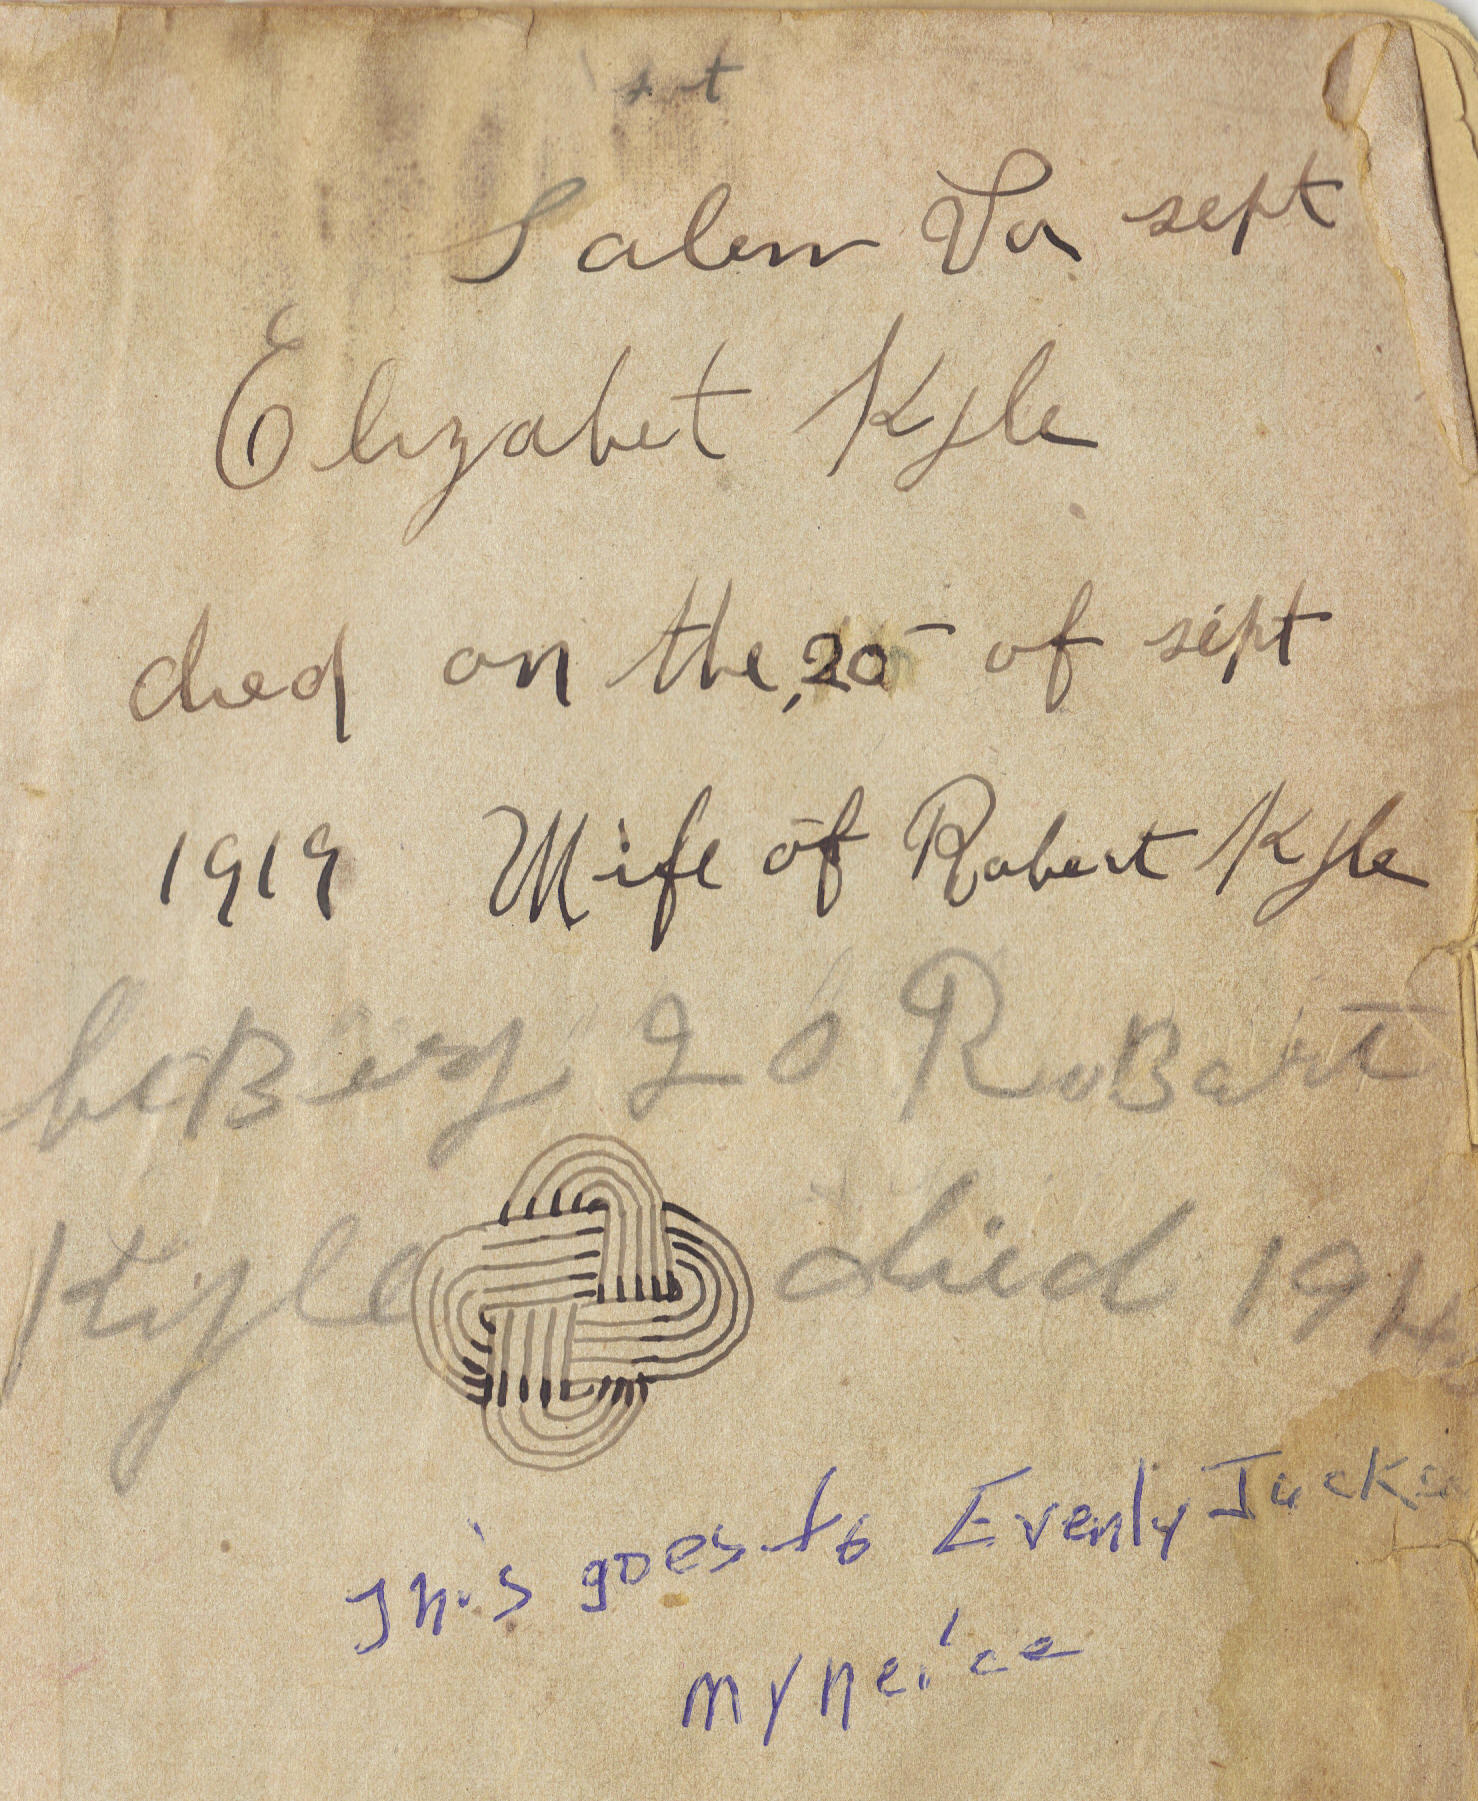 Salem Va sept
Elizabet Kyle
died on the, 20 of sept
1919 Wife of Robert Kyle
20 RoBart
Kyle died 194
This goes to Evenly
my neice